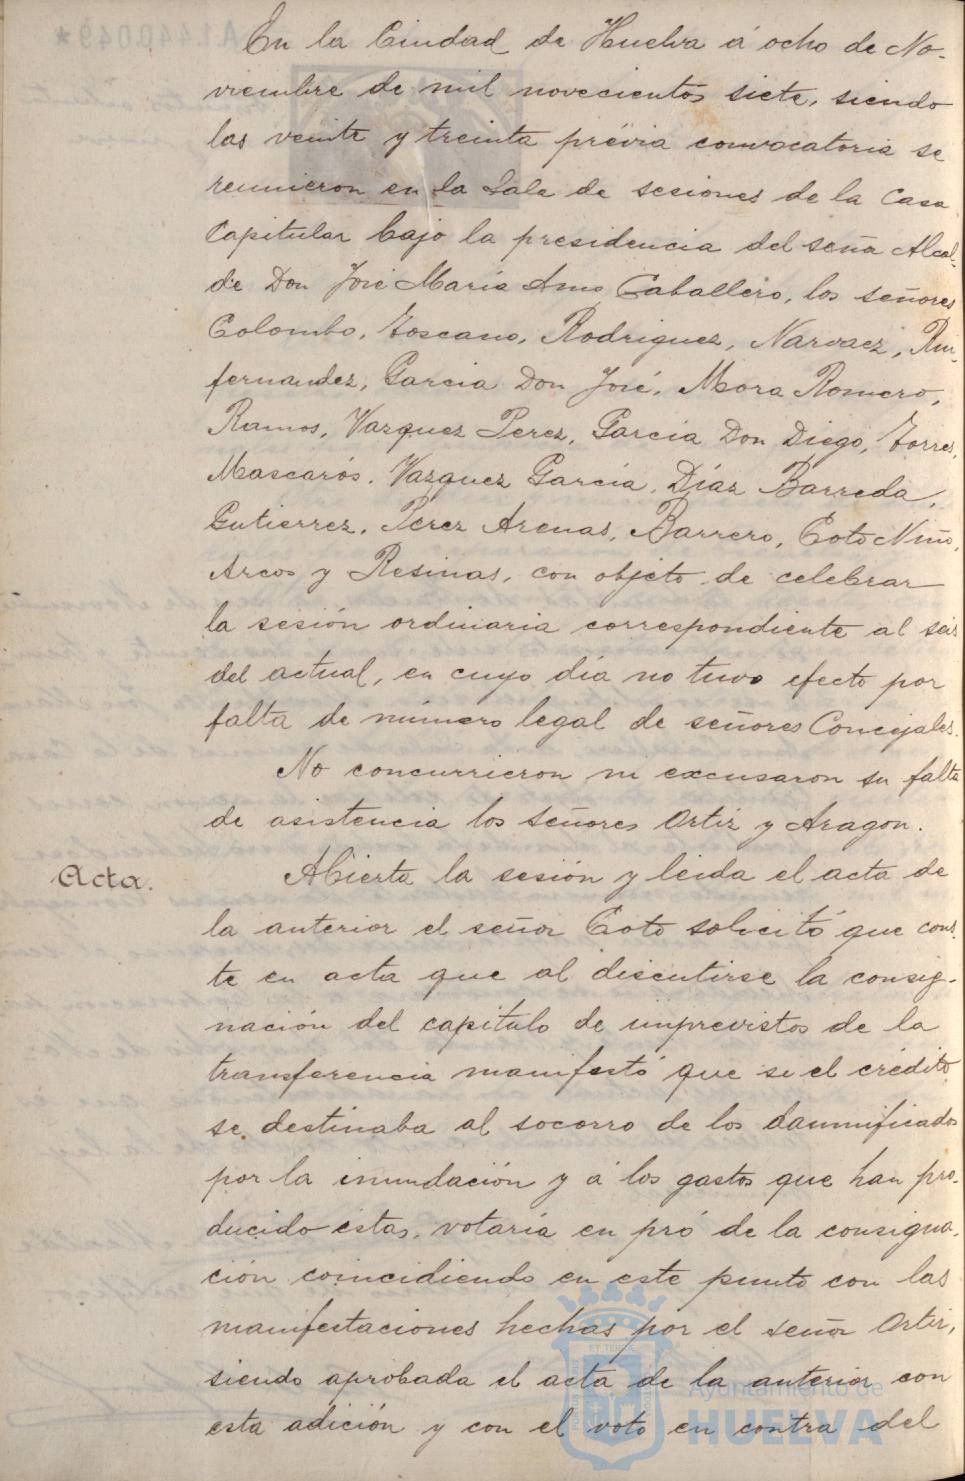 En la Ciudad de Huelva á ocho de No-
viembre de mil novecientos siete, siendo
las veinte y treinta prévia convocatoria se
reunieron en la Sala de sesiones de la Casa
Capitular bajo la presidencia del señor Alcal-
de Don José María Amo Caballero, los señores
Colombo, Toscano, Rodriguez, Narvaez, Rui-
fernandez, Garcia Don José, Mora Romero,
Ramos, Vazquez Perez, Garcia Don Diego, Torres,
Mascarós, Vazquez García, Díaz Barreda,
Gutierrez, Perez Arenas, Barrero, Coto Niño,
Arcos y Resinas, con objeto de celebrar
la sesión ordinaria correspondiente al seis
del actual, en cuyo día no tuvo efecto por
falta de número legal de señores Concejales.
No concurrieron ni excusaron su falta
de asistencia los señores Ortiz y Aragon.
Acta.
Abierta la sesión y leida el acta de
la anterior el señor Coto solicitó que cons-
te en acta que al discutirse la consig-
nación del capitulo de imprevistos de la
transferencia manifestó que si el crédito
se destinaba al socorro de los damnificados
por la inundación y á los gastos que han pro-
ducido éstas, votaría en pró de la consigna-
ción coincidiendo en este punto con las
manifestaciones hechas por el señor Ortiz,
siendo aprobada el acta de la anterior con
esta adición y con el voto en contra del
Ayuntamiento de
HUELVA